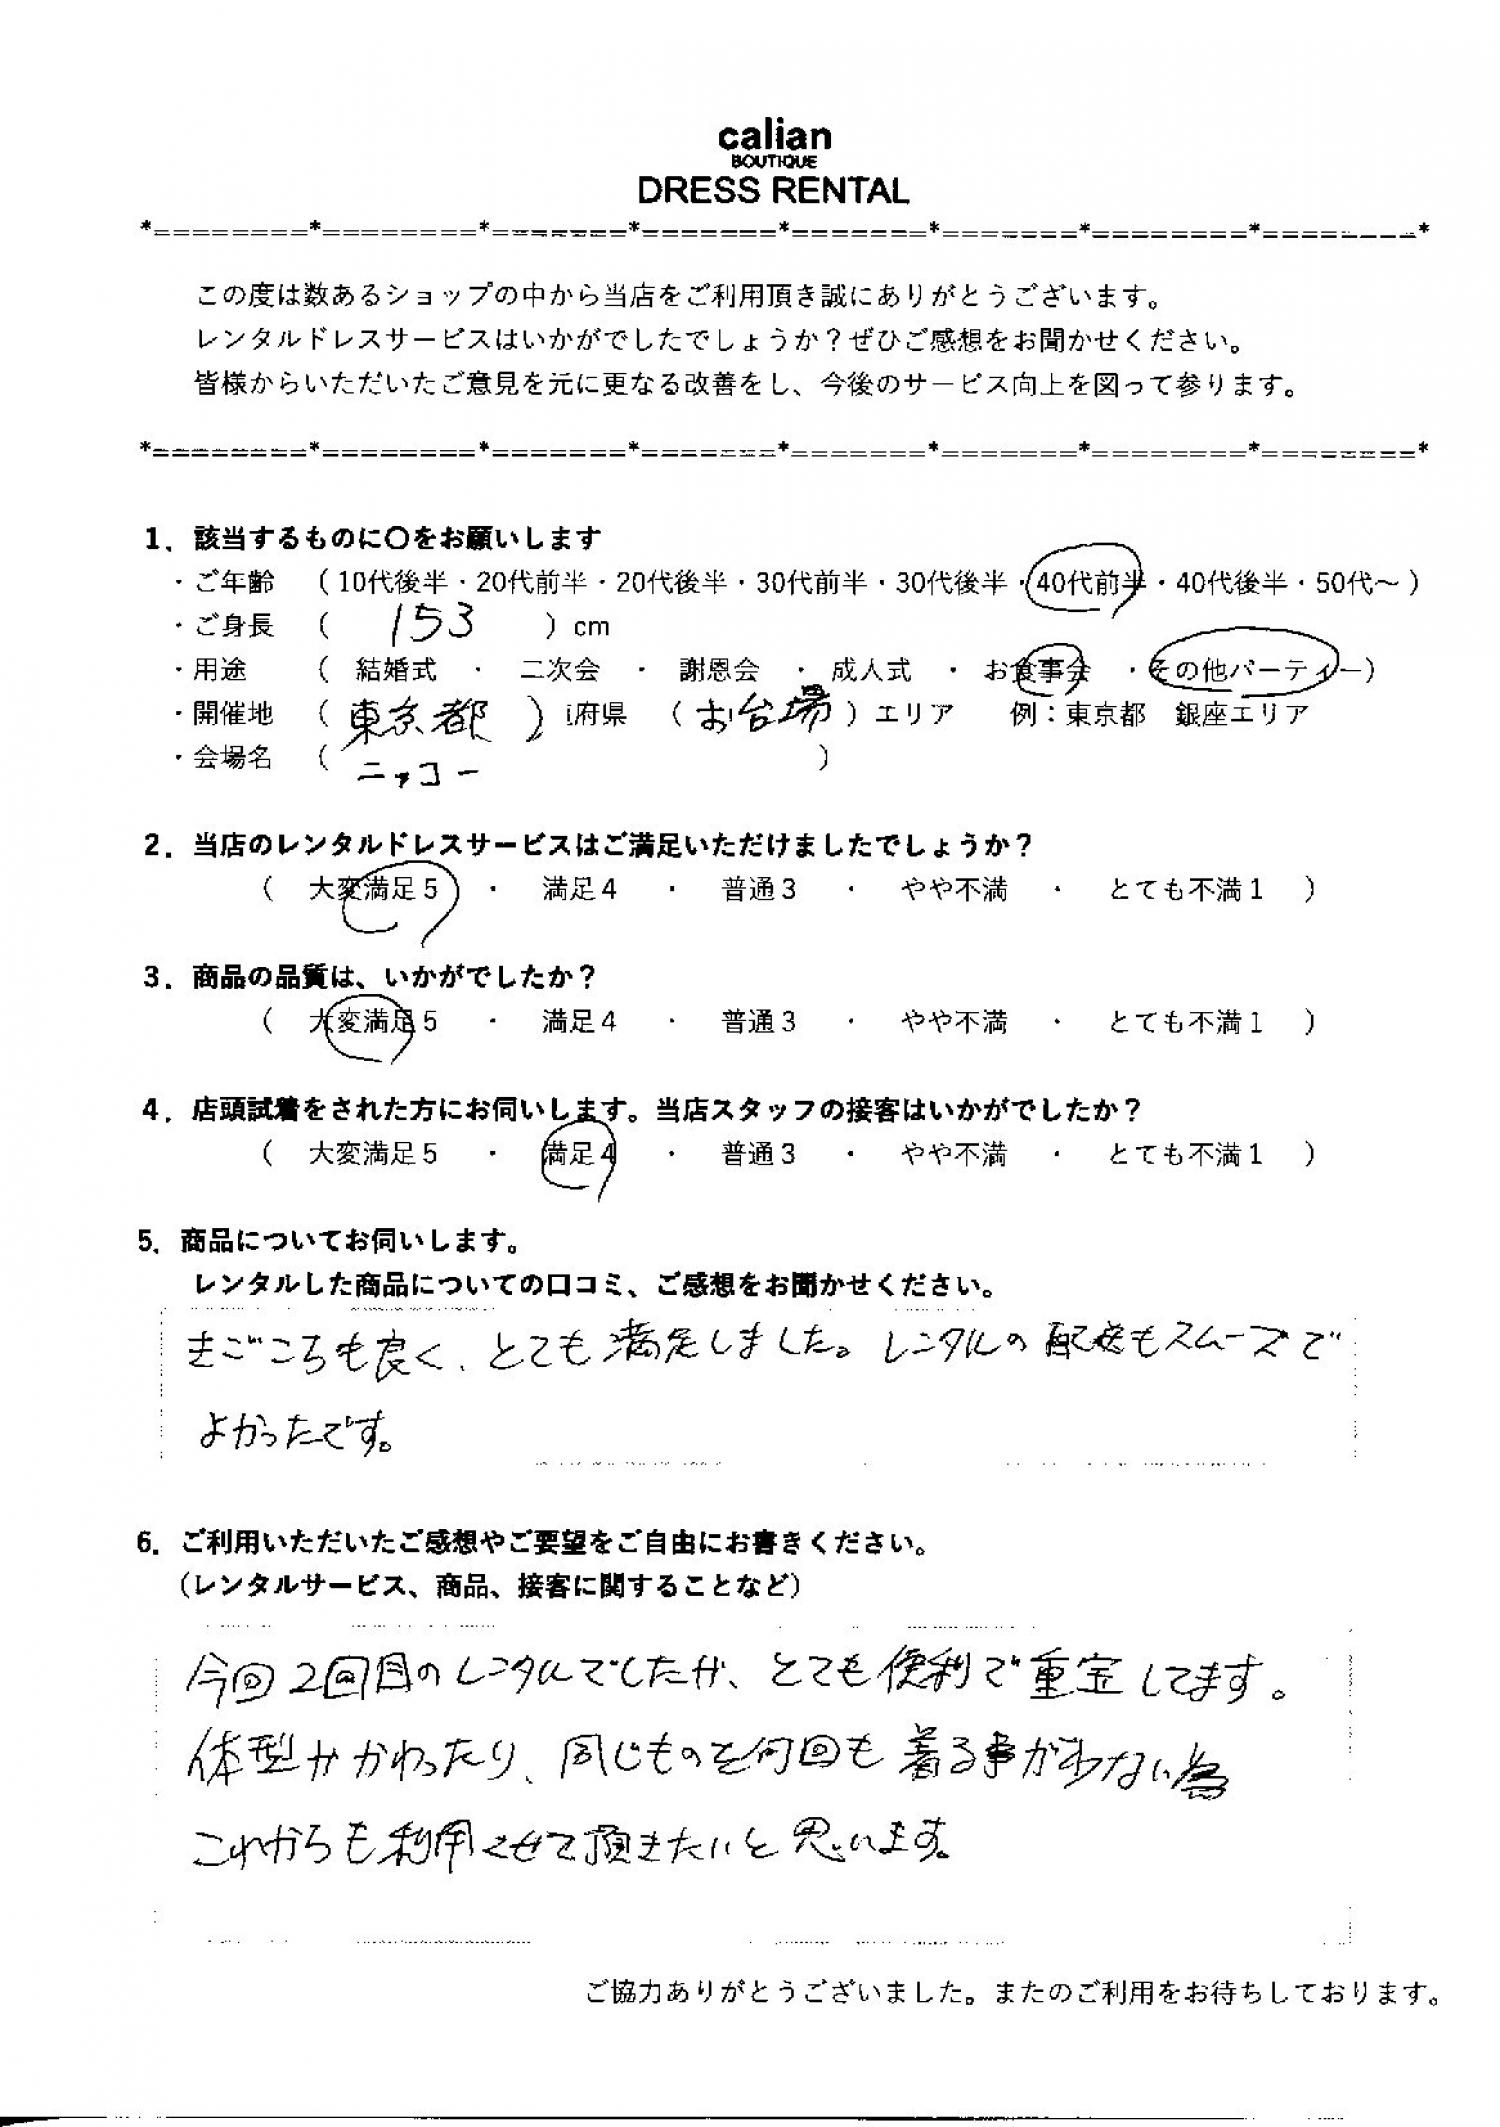 calian
BOUTIQUE
DRESS RENTAL
*========*========*=======*=======*=======*=======*========*========*
この度は数あるショップの中から当店をご利用頂き誠にありがとうございます。
レンタルドレスサービスはいかがでしたでしょうか？ぜひご感想をお聞かせください。
皆様からいただいたご意見を元に更なる改善をし、今後のサービス向上を図って参ります。
*========*========*=======*=======*=======*=======*========*========*
1．該当するものに〇をお願いします
・ご年齢　（10代後半・20代前半・20代後半・30代前半・30代後半・40代前半・40代後半・50代～）
・ご身長　（　153　）cm
・用途　（　結婚式　・　二次会　・　謝恩会　・　成人式　・　お食事会　・その他パーティー）
・開催地　（東京都　）府県　（お台場）エリア　例：東京都　銀座エリア
・会場名　（　ニッコー　）
2．当店のレンタルドレスサービスはご満足いただけましたでしょうか？
（　大変満足５　・　満足４　・　普通３　・　やや不満　・　とても不満１　）
3．商品の品質は、いかがでしたか？
（　大変満足５　・　満足４　・　普通３　・　やや不満　・　とても不満１　）
4．店頭試着をされた方にお伺いします。当店スタッフの接客はいかがでしたか？
（　大変満足５　・　満足４　・　普通３　・　やや不満　・　とても不満１　）
5．商品についてお伺いします。
レンタルした商品についての口コミ、ご感想をお聞かせください。
きごこちも良く、とても満足しました。レンタルの配送もスムーズで
よかったです。
6．ご利用いただいたご感想やご要望をご自由にお書きください。
（レンタルサービス、商品、接客に関することなど）
今回2回目のレンタルでしたが、とても便利で重宝してます。
体型がかわったり、同じものを何回も着る事がわない為
これからも利用させて頂きたいと思います。
ご協力ありがとうございました。またのご利用をお待ちしております。